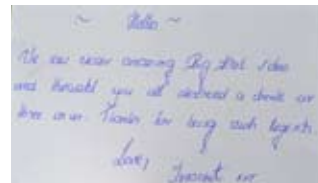 ~ Hello ~
We saw your amazing
and thought you all deserved a drink or
three on us. Thanks for being such legends.
Love,